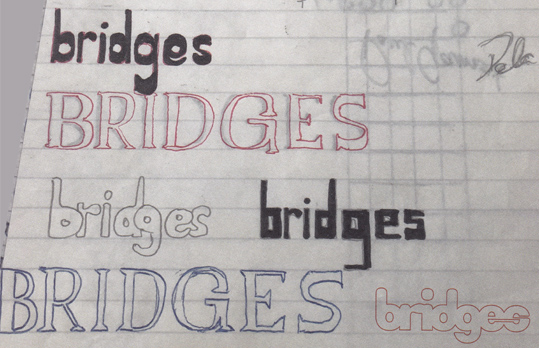 bridges
BRIDGES
bridges bridges
BRIDGES bridges